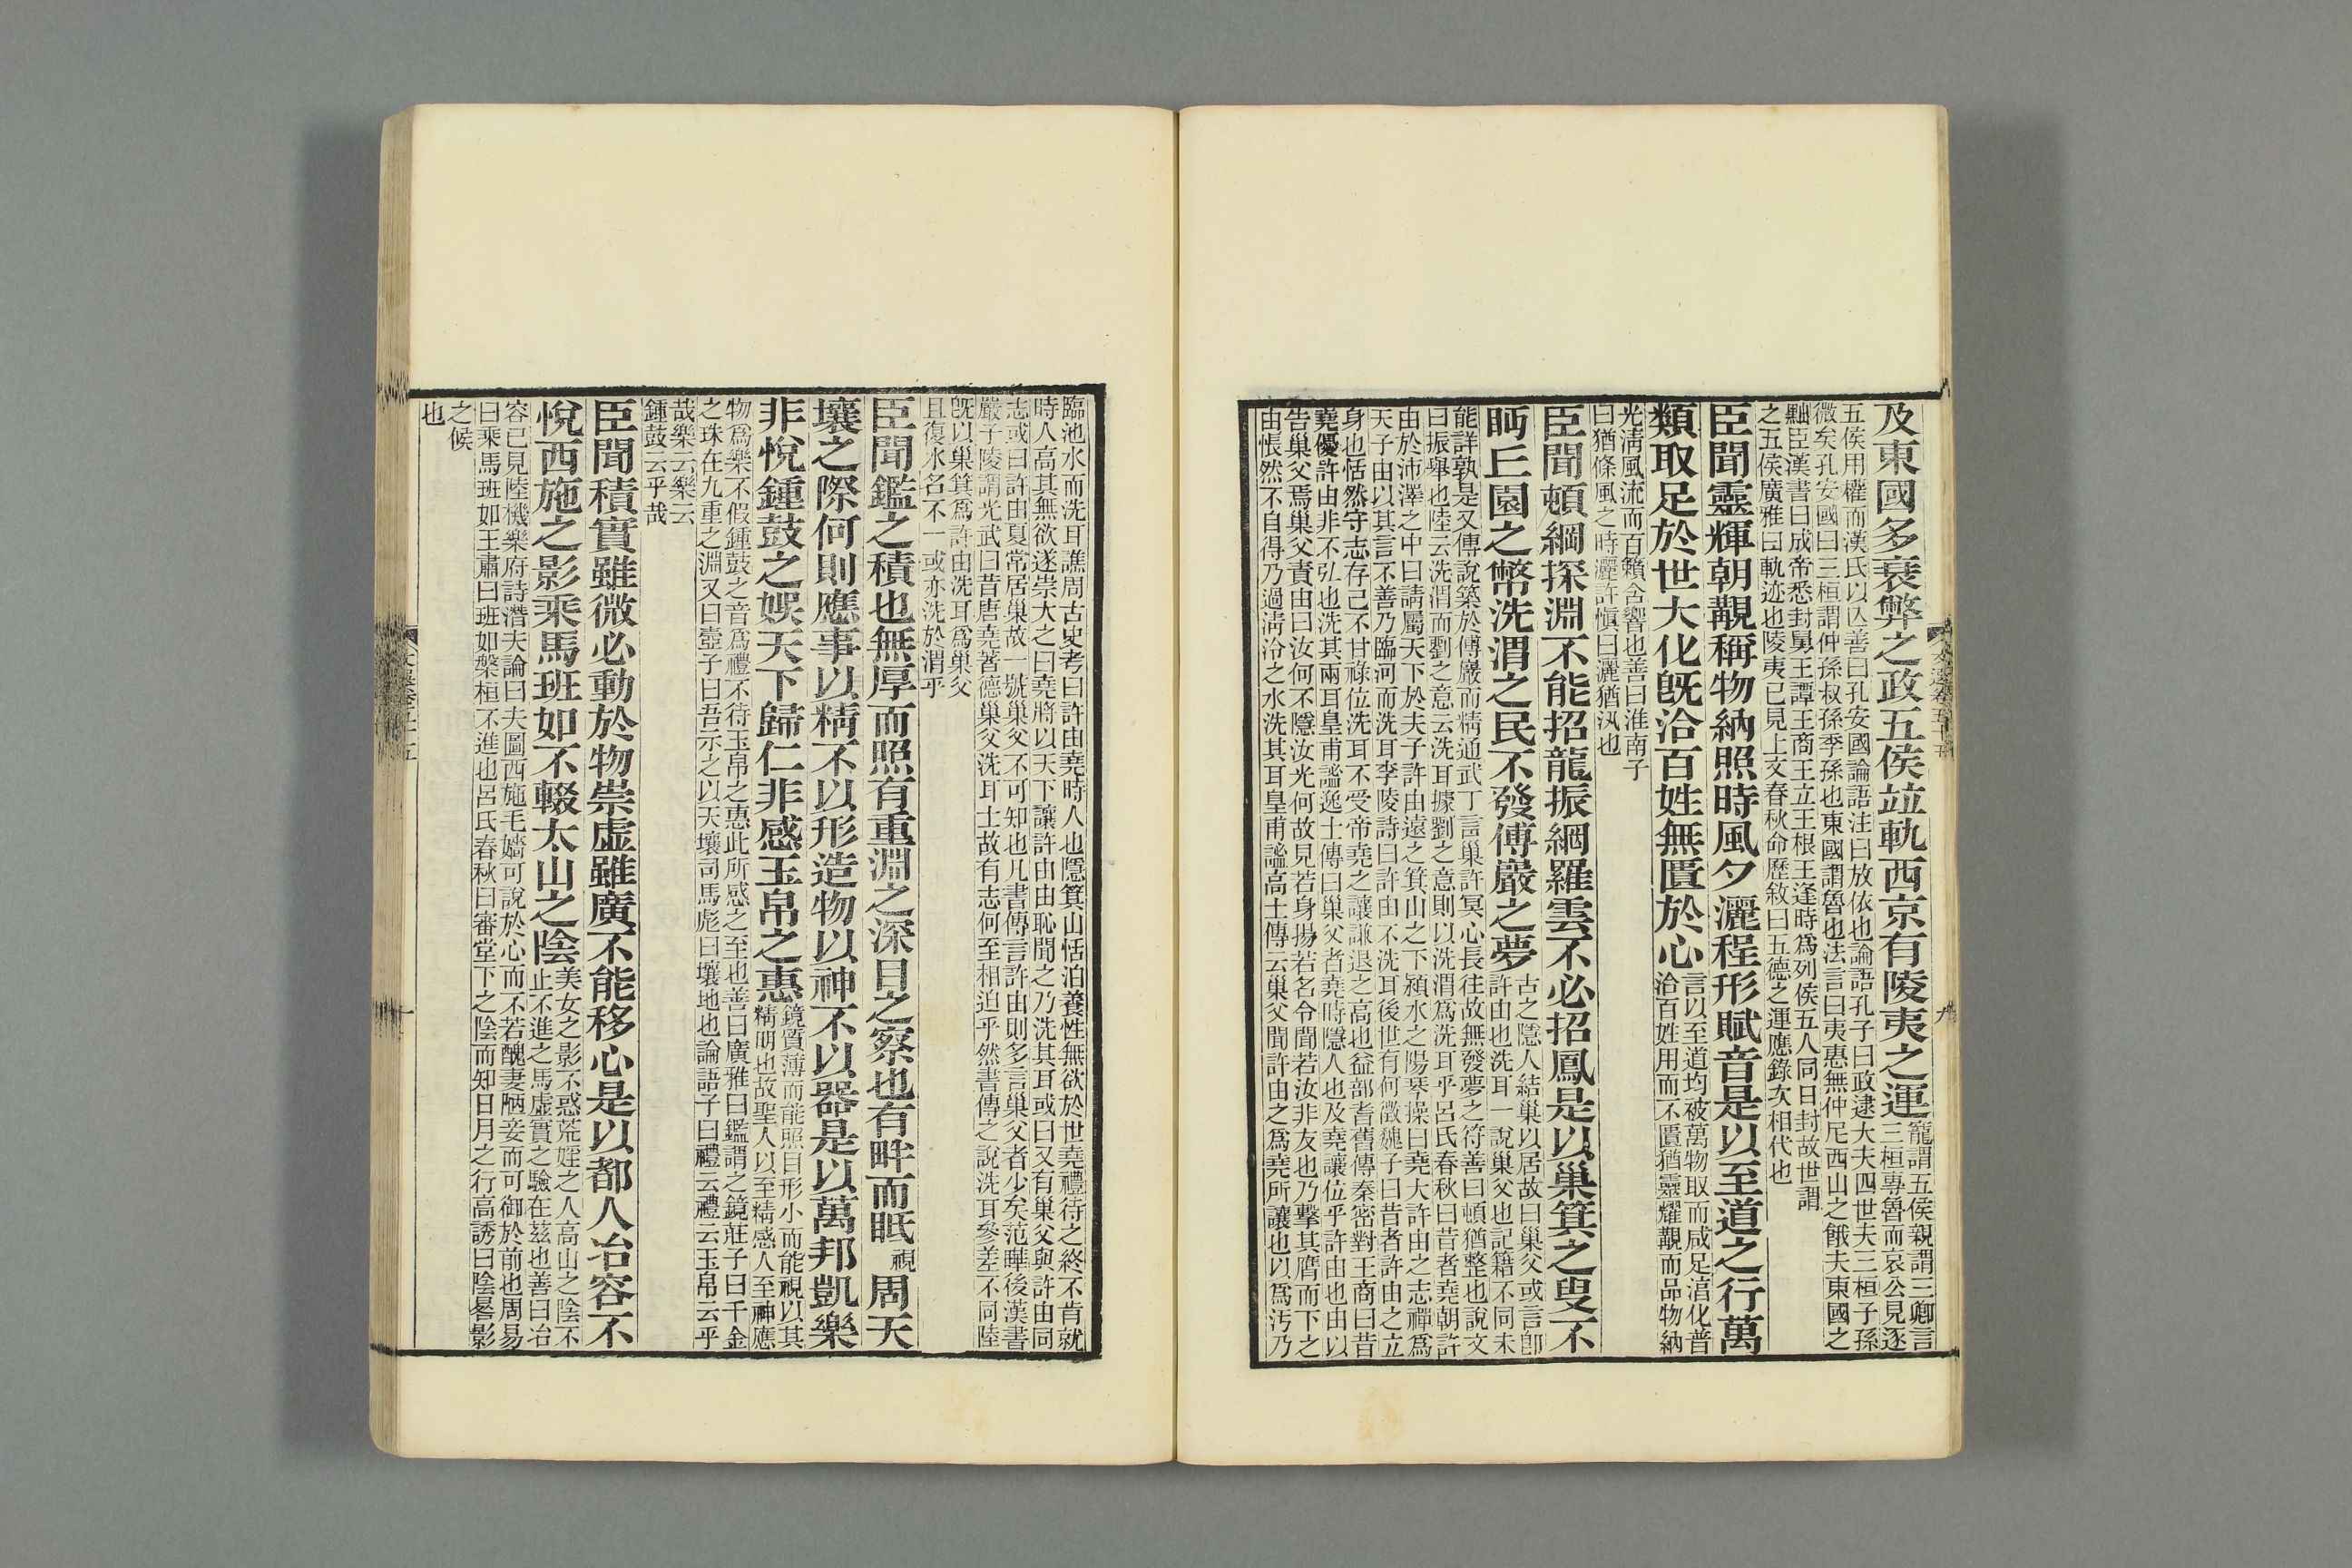 及東國多衰弊之政五侯竝軌西京有陵夷之運寵謂五侯親謂三卿言
三桓專魯而哀公見逐
五侯用權而漢氏以亾善曰孔安國論語注曰放依也論語孔子曰政逮大夫四世夫三桓子孫
微矣孔安國曰三桓謂仲孫叔孫季孫也東國謂魯也法言曰夷惠無仲尼西山之餓夫東國之
黜臣漢書曰成帝悉封舅王譚王商王立王根王逢時爲列侯五人同日封故世謂
之五侯廣雅曰軌迹也陵夷已見上文春秋命歷敘曰五德之運應錄次相代也
臣聞靈輝朝覯稱物納照時風夕灑程形賦音是以至道之行萬
類取足於世大化旣洽百姓無匱於心言以至道均被萬物取而咸足淳化普
洽百姓用而不匱猶靈耀覯而品物納
光淸風流而百籟含響也善曰淮南子
曰猶條風之時灑許愼曰灑猶汛也
臣聞頓綱探淵不能招龍振綱羅雲不必招鳳是以巢箕之叟不
眄丘園之幣洗渭之民不發傅巖之夢古之隱人結巢以居故曰巢父或言卽
許由也洗耳一說巢父也記籍不同未
能詳孰是又傳說築於傅巖而精通武丁言巢許冥心長往故無發夢之符善曰頓猶整也說文
曰振舉也陸云洗渭而劉之意云洗耳據劉之意則以洗渭爲洗耳乎呂氏春秋曰昔者堯朝許
由於沛澤之中曰請屬天下於夫子許由遂之箕山之下潁水之陽琴操曰堯大許由之志禪爲
天子由以其言不善乃臨河而洗耳李陵詩曰許由不洗耳後世有何徵魏子曰昔者許由之立
身也恬然守志存己不甘祿位洗耳不受帝堯之讓謙退之高也益部耆舊傳秦密對王商曰昔
堯優許由非不弘也洗其兩耳皇甫謐逸士傳曰巢父者堯時隱人也及堯讓位乎許由也由以
告巢父焉巢父責由曰汝何不隱汝光何故見若身揚若名令聞若汝非友也乃擊其膺而下之
由悵然不自得乃過淸泠之水洗其耳皇甫謐高士傳云巢父聞許由之爲堯所讓也以爲汚乃
臨池水而洗耳譙周古史考曰許由堯時人也隱箕山恬泊養性無欲於世堯禮待之終不肯就
時人高其無欲遂崇大之曰堯將以天下讓許由由恥聞之乃洗其耳或曰又有巢父與許由同
志或曰許由夏常居巢故一號巢父不可知也凡書傳言許由則多言巢父者少矣范曄後漢書
嚴子陵謂光武曰昔唐堯著德巢父洗耳士故有志何至相迫乎然書傳之說洗耳參差不同陸
旣以巢箕爲許由洗耳爲巢父
且復水名不一或亦洗於渭乎
臣聞鑑之積也無厚而照有重淵之深目之察也有畔而眂視周天
壤之際何則應事以精不以形造物以神不以器是以萬邦凱樂
非悅鍾鼓之娛天下歸仁非感玉帛之惠鏡質薄而能照目形小而能視以其
精明也故聖人以至精感人至神應
物爲樂不假鍾鼓之音爲禮不待玉帛之惠此所感之至也善曰廣雅曰鑑謂之鏡莊子曰千金
之珠在九重之淵又曰壺子曰吾示之以天壤司馬彪曰壤地也論語子曰禮云禮云玉帛云乎
哉樂云樂云
鍾鼓云乎哉
臣聞積實雖微必動於物崇虛雖廣不能移心是以都人冶容不
悅西施之影乘馬班如不輟太山之陰美女之影不惑荒婬之人高山之陰不
止不進之馬虛實之驗在茲也善曰冶
容已見陸機樂府詩潛夫論曰夫圖西施毛嬙可說於心而不若醜妻陋妾而可御於前也周易
曰乘馬班如王肅曰班如槃桓不進也呂氏春秋曰審堂下之陰而知日月之行高誘曰陰晷影
之候
也